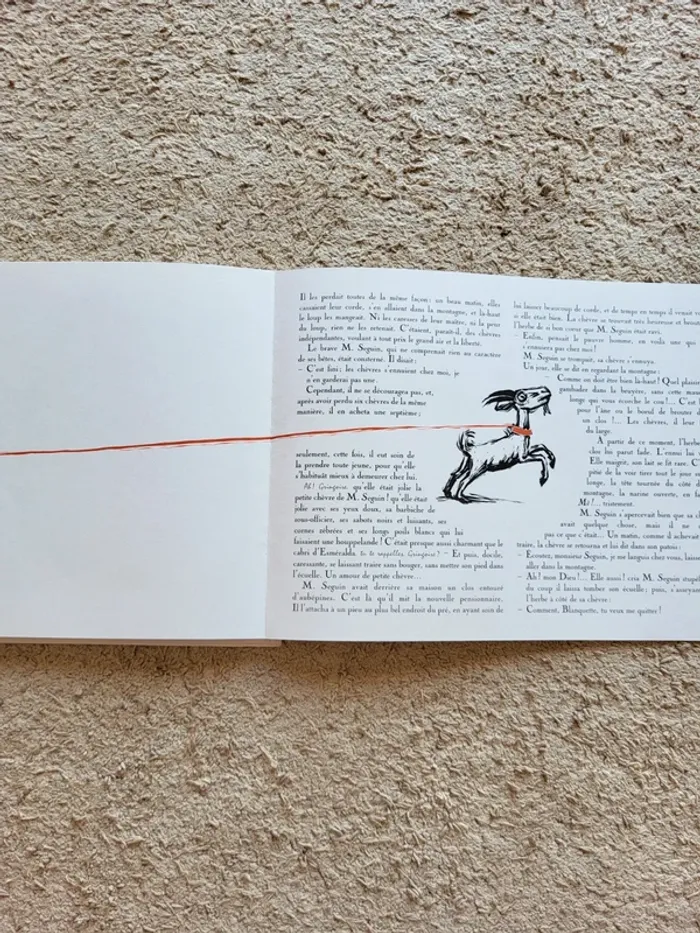 Il les perdait toutes de la même façon : un beau matin, elles
cassaient leur corde, s'en allaient dans la montagne, et là-haut
le loup les mangeait. Ni les caresses de leur maître, ni la peur
du loup, rien ne les retenait. C'étaient, paraît-il, des chèvres
indépendantes, voulant à tout prix le grand air et la liberté.
Le brave M. Seguin, qui ne comprenait rien au caractère
de ses bêtes, était consterné. Il disait :
– C'est fini ; les chèvres s'ennuient chez moi, je
n'en garderai pas une.
Cependant, il ne se découragea pas, et,
après avoir perdu six chèvres de la même
manière, il en acheta une septième ;
seulement, cette fois, il eut soin de
la prendre toute jeune, pour qu'elle
s'habituât mieux à demeurer chez lui.
Ah ! Gringoire, qu'elle était jolie la
petite chèvre de M. Seguin ! qu'elle était
jolie avec ses yeux doux, sa barbiche de
sous-officier, ses sabots noirs et luisants, ses
cornes zébrées et ses longs poils blancs qui lui
faisaient une houppelande ! C'était presque aussi charmant que le
cabri d'Esméralda, tu te rappelles, Gringoire ? – Et puis, docile,
caressante, se laissant traire sans bouger, sans mettre son pied dans
l'écuelle. Un amour de petite chèvre...
M. Seguin avait derrière sa maison un clos entouré
d'aubépines. C'est là qu'il mit la nouvelle pensionnaire.
Il l'attacha à un pieu au plus bel endroit du pré, en ayant soin de
lui laisser beaucoup de corde, et de temps en temps il venait
si elle était bien. La chèvre se trouvait très heureuse et
l'herbe de si bon cœur que M. Seguin était ravi.
– Enfin, pensait le pauvre homme, en voilà une qui
s'ennuiera pas chez moi !
M. Seguin se trompait, sa chèvre s'ennuya.
Un jour, elle se dit en regardant la montagne :
– Comme on doit être bien là-haut ! Quel
gambader dans la bruyère, sans cette
longe qui vous écorche le cou !... C'est
pour l'âne ou le bœuf de brouter
un clos !... Les chèvres, il leur
du large.
À partir de ce moment, l'herbe
clos lui parut fade. L'ennui lui
Elle maigrit, son lait se fit rare. C'
pitié de la voir tirer tout le jour
longe, la tête tournée du côté d
montagne, la narine ouverte, en
Mê !... tristement.
M. Seguin s'apercevait bien que sa
avait quelque chose, mais il ne
pas ce que c'était... Un matin, comme il achevait
traire, la chèvre se retourna et lui dit dans son patois :
– Écoutez, monsieur Seguin, je me languis chez vous,
aller dans la montagne.
– Ah ! mon Dieu !... Elle aussi ! cria M. Seguin
du coup il laissa tomber son écuelle ; puis, s'asseyant
l'herbe à côté de sa chèvre :
– Comment, Blanquette, tu veux me quitter !